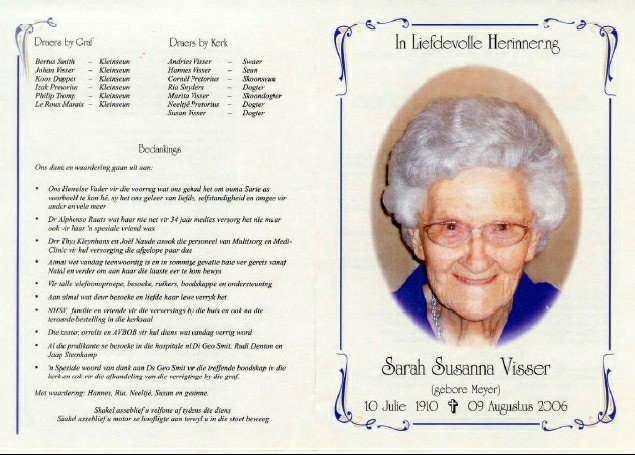 Draers by Graf
Bertus Smith – Kleinseun
Johan Visser – Kleinseun
Koos Duppee – Kleinseun
Izak Pretorius – Kleinseun
Philip Tromp – Kleinseun
Le Roux Marais – Kleinseun
Draers by Kerk
Andries Visser – Swaer
Hannes Visser – Seun
Cornél Pretorius – Skoonseun
Ria Snyders – Dogter
Marita Visser – Skoondogter
Neeltjé Pretorius – Dogter
Susan Visser – Dogter
Bedankings
Ons dank en waardering gaan uit aan:
• Ons Hemelse Vader vir die voorreg wat ons gehad het om ouma Sarie as
voorbeeld te kon hê, sy het ons geleer van liefde, selfstandigheid en omgee vir
ander en vele meer
• Dr Alphonso Raats wat haar nie net vir 34 jaar medies versorg het nie maar
ook vir haar 'n spesiale vriend was
• Drr Thys Kleynhans en Joël Naude asook die personeel van Multisorg en Medi-
Clinic vir hul versorging die afgelope paar dae
• Almal wat vandag teenwoordig is en in sommige gevalle baie ver gereis vanaf
Natal en verder om aan haar die laaste eer te kon bewys
• Vir talle telefoonoproepe, besoeke, ruikers, boodskappe en ondersteuning
• Aan almal wat deur besoeke en liefde haar lewe verryk het
• NHSV, familie en vriende vir die verversings by die huis en ook na die
teraardebestelling in die kerksaal
• Die koster, orrelis en AVBOB vir hul diens wat vandag verrig word
• Al die predikante se besoeke in die hospitale nl Di Geo Smit, Rudi Denton en
Jaap Steenkamp
• 'n Spesiale woord van dank aan Ds Geo Smit vir die treffende boodskap in die
kerk en ook vir die afhandeling van die verrigtinge by die graf.
Met waardering: Hannes, Ria, Neeltjé, Susan en gesinne.
Skakel asseblief u selfone af tydens die diens
Skakel asseblief u motor se hoofligte aan terwyl u in die stoet beweeg
In Liefdevolle Herinnering
Sarah Susanna Visser
(gebore Meyer)
10 Julie 1910 ✝ 09 Augustus 2006